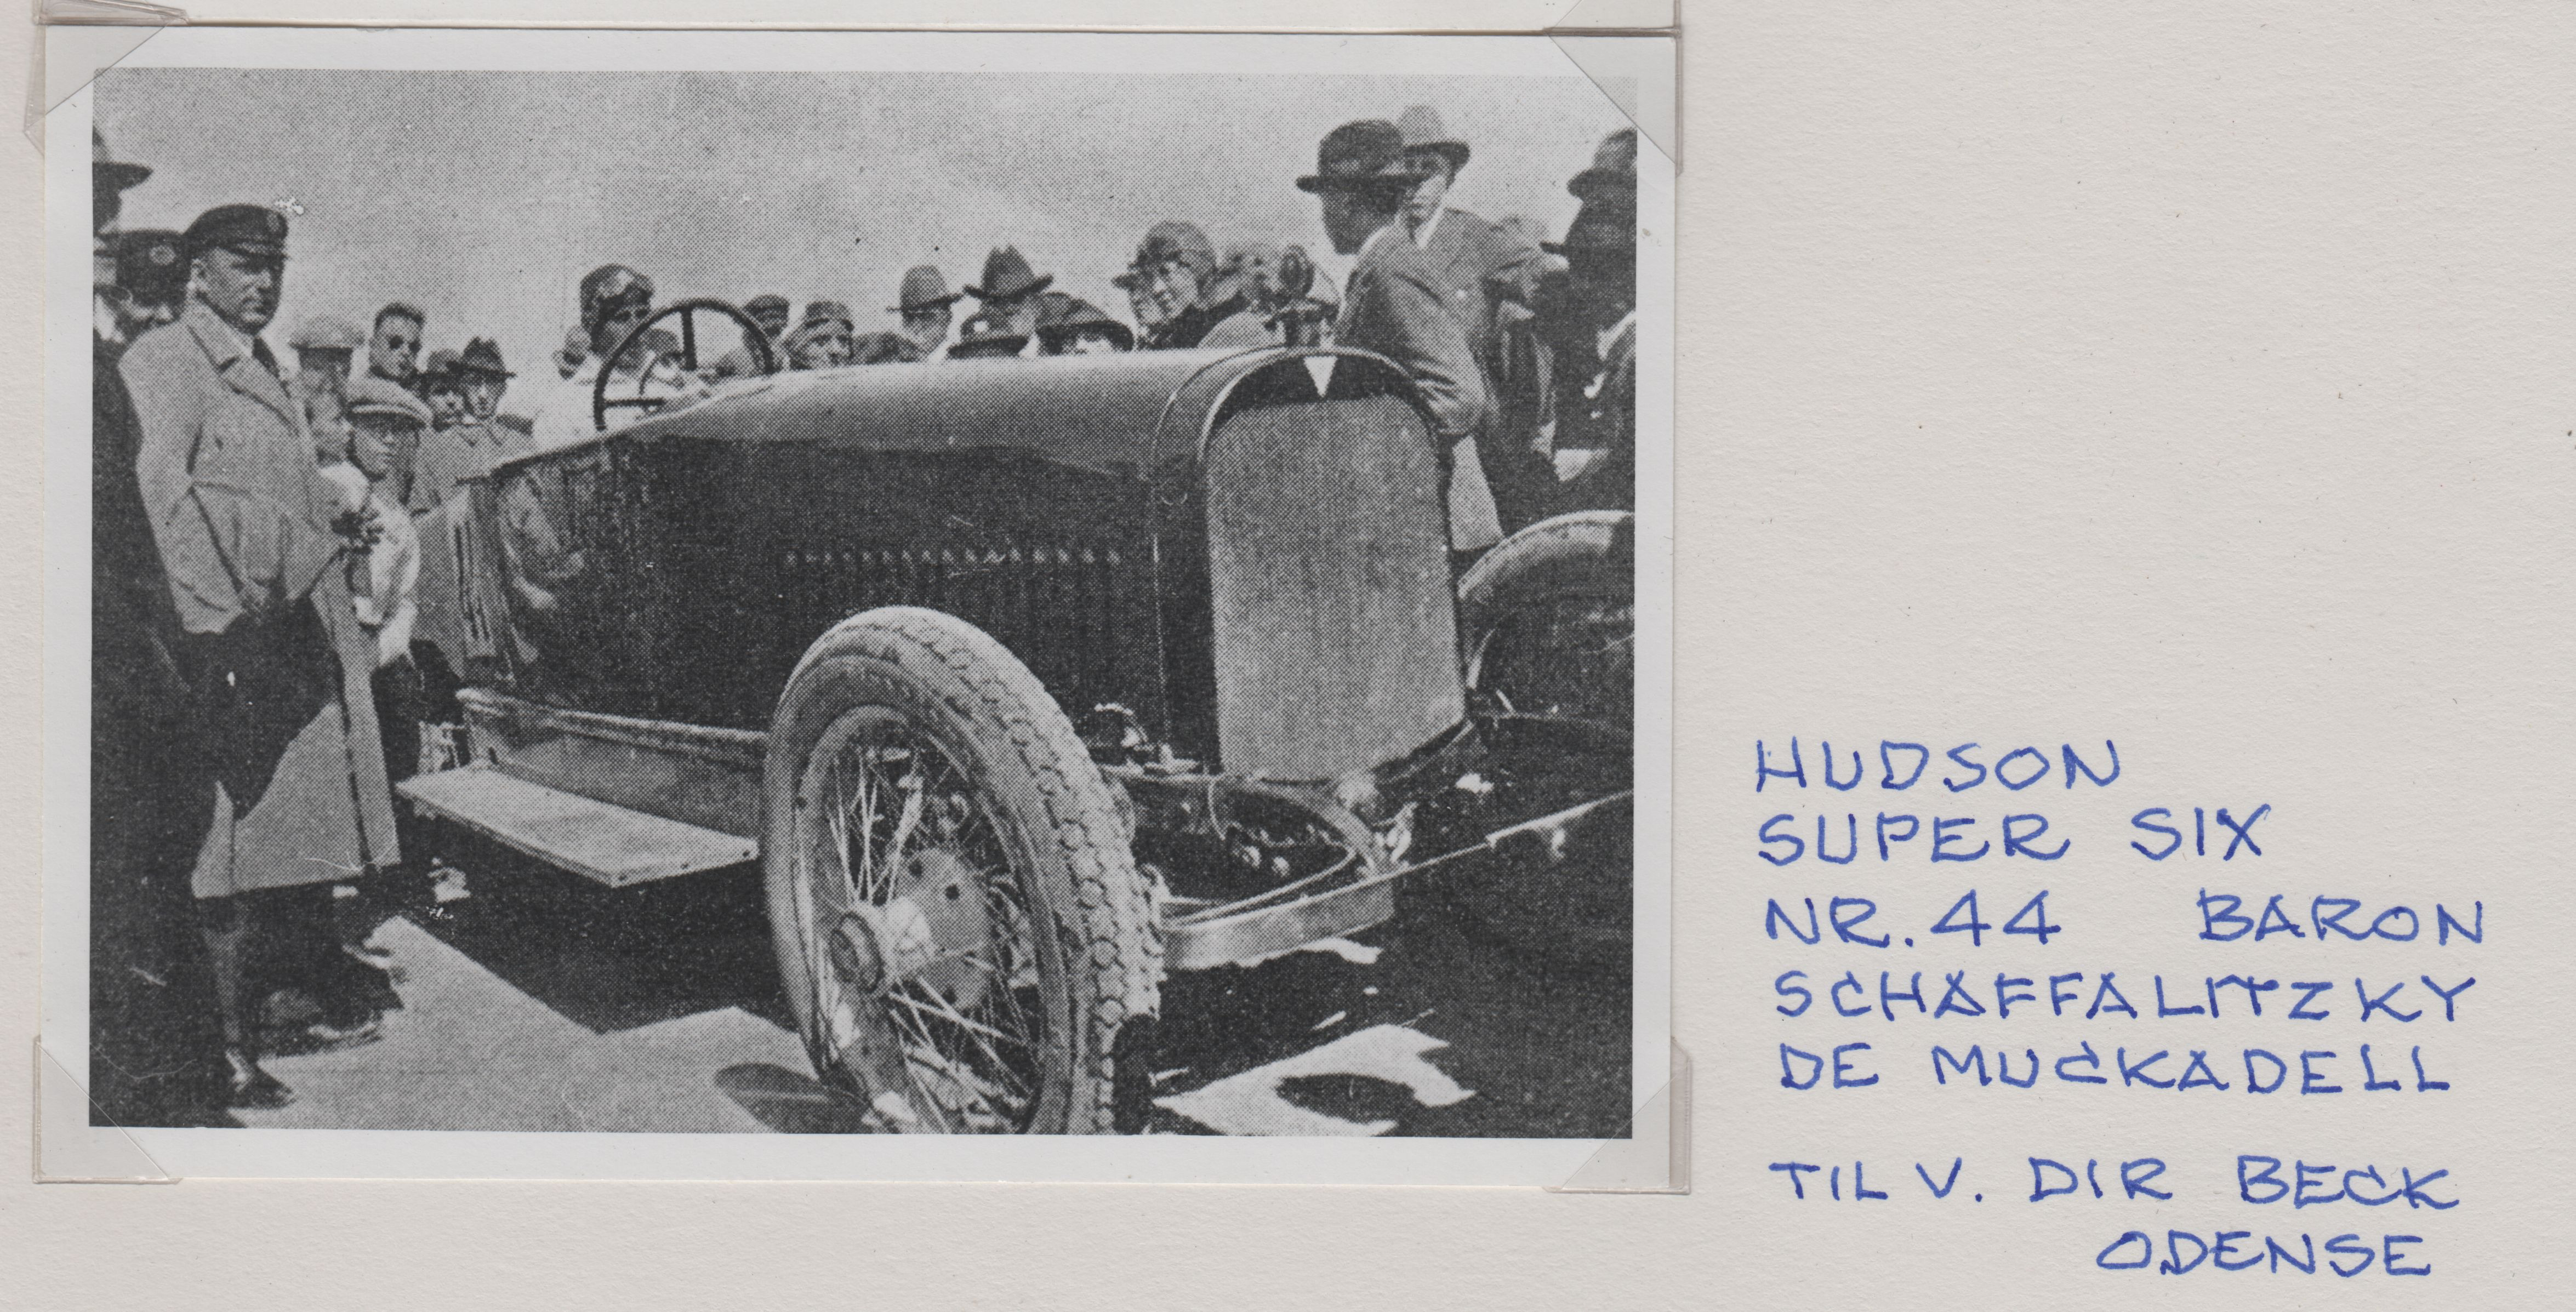 HUDSON
SUPER SIX
NR. 44 BARON
SCHAFFALITZKY
DE MUCKADELL
TIL V. DIR BECK
ODENSE